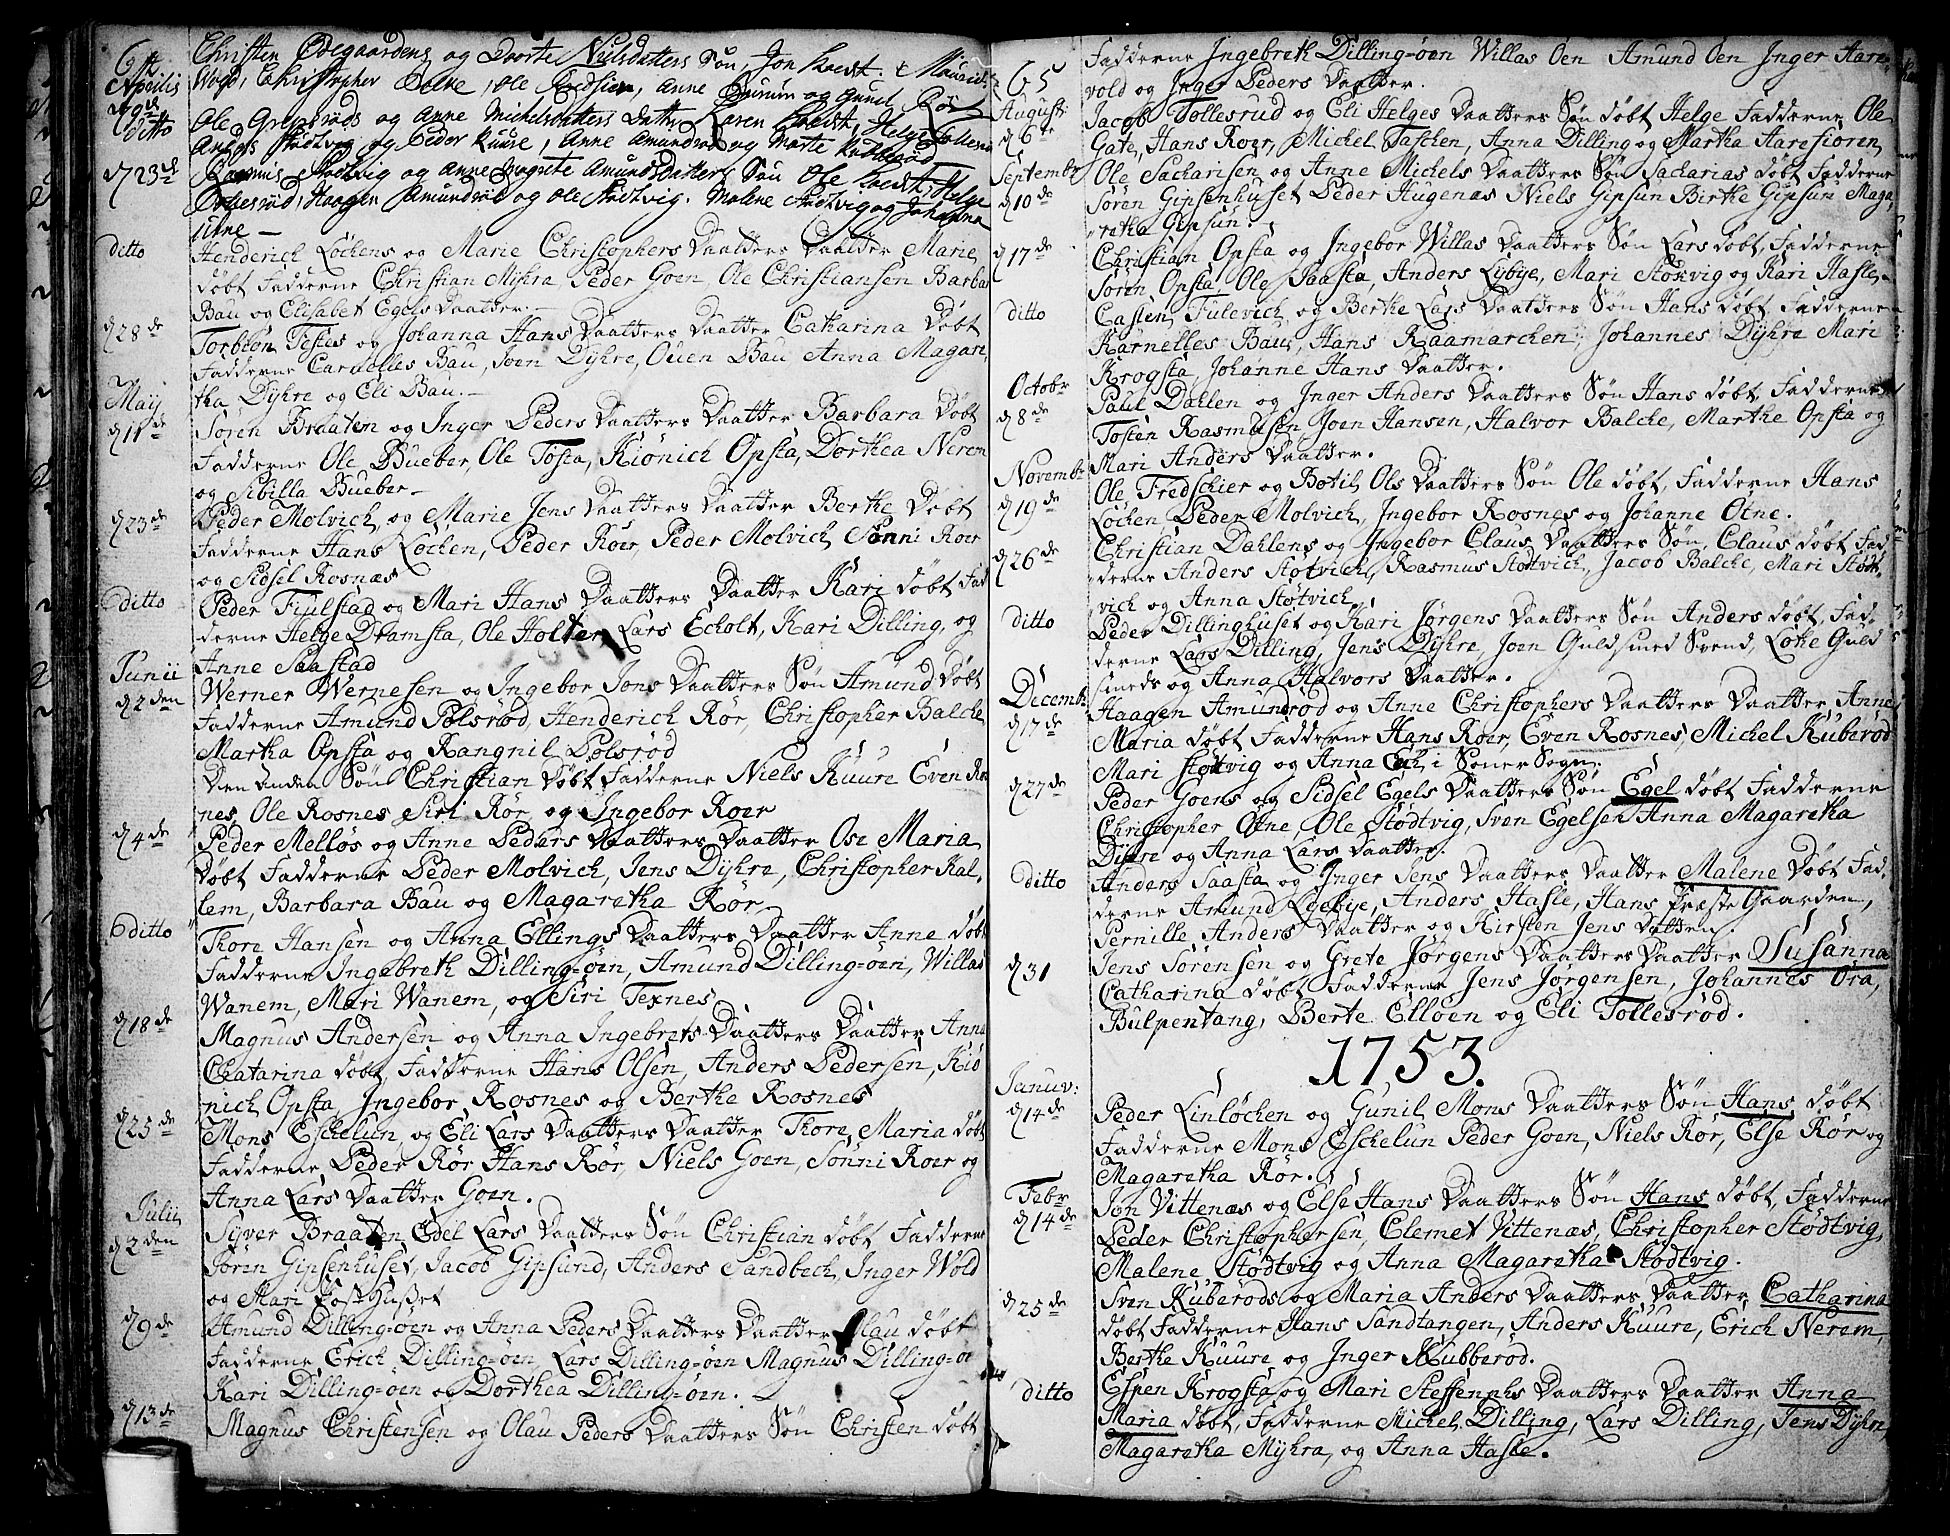 Christen Ödegaardens og Dorte Nielsdatters Sön, Jon kaldt.
Aprilis
Wold, Christopher Oelne, Ole Fredsien, Anne
ditto
Ole Gregeröds og Anne Michelsdatters datter Karen kaldt, Helge
Anders Stödtvig og Peder Kuure, Anne Amundröd og Marte Kubberöd
d 23de
Rasmus Stödtvig og Anne Magrete Amundsdatters Sön Ole kaldt, Helge
Tollesröd, Haagen Amundröd og Ole Stödtvig. Malene Stödtvig og Johanna
Utne —
ditto
Henderich Löchens og Marie Christophers Daatters Daatter Marie
döbt Fadderne Christian Myhra, Peder Goen, Ole Christiansen Barbar
Bau og Elisabet Egels Daatter —
d 28de
Torbiön Testes og Johanna Hans Daatters Daatter Catharina Döbt
Fadderne Carnelles Bau, Joen Dyhre, Ouen Bau Anna Magare
tha Dyhre og Eli Bau. —
Maij
d 11de
Sören Braaten og Inger Peders Daatters Daatter Barbara Döbt
Fadderne Ole Bueber, Ole Tosta, Kiönich Opsta, Dorthea Nerem
og Sibilla Bueber —
d 23de
Peder Molvich og Marie Jens Daatters Daatter Berthe Döbt
Fadderne Hans Lochen, Peder Roer, Peder Molvich Sönni Roer
og Sidsel Rosnæs
ditto
Peder Fiulstad og Mari Hans Daatters Daatter Kari döbt Fad
derne Helge Dramsta, Ole Holter, Lars Echolt, Kari Dilling, og
Anne Saastad
Junii
d 2den
Werner Wernesen og Ingebor Jons Daatters Sön Amund Döbt
Fadderne Amund Polsröd, Henderich Rör, Christopher Balche
Martha Opsta og Rangnil Polsröd
Den anden Sön Christian Döbt Fadderne Niels Kuure Even Ros
nes, Ole Rosnes Siri Rör, og Ingebor Roer
d 4de
Peder Mellös og Anne Peders Daatters Daatter Ose Maria
Döbt Fadderne Peder Molvich, Jens Dyhre, Christopher Kal,
lem, Barbara Bau og Magaretha Rör
ditto
Thore Hansen og Anna Ellings Daatters Daatter Anne döbt
Fadderne Ingebreth Dilling-öen, Amund Dilling-öen, Willas
Wanem, Mari Wanem, og Siri Texnes
d 18de
Magnus Andersen og Anna Ingebrets Daatters Daatter Anna
Chatarina döbt, Fadderne Hans Olsen, Anders Pedersen, Kiö
nich Opsta, Ingebor Rosnes og Berthe Rosnes
d 25de
Mons Eschelun og Eli Lars Daatters Daatter Thore Maria döbt
Fadderne Peder Rör Hans Rör, Niels Goen, Sönni Roer og
Anna Lars Daatter Goen.
Julii
d 2den
Syver Braaten, Edel Lars Daatters Sön Christian döbt Fadderne
Sören Gipsenhuset, Jacob Gipsund, Anders Sandbech, Inger Wold
og Mari Posthuset
d 9de
Amund Dilling-öen og Anna Peders Daatters Daatter Olau döbt
Fadderne Erich Dilling-öen, Lars Dilling-öen Magnus Dilling-öe
Kari Dilling-öen og Dorthea Dilling-öen.
d 13de
Magnus Christensen og Olau Peders Daatters Sön Christen döbt
65
Fadderne Ingebreth Dilling-öen Willas Öen Amund Öen Inger Aare,
vold og Inger Peders Daatter.
August:
d 6te
Jacob Tollesrud og Eli Helges Daatters Sön döbt Helge Fadderne Ole
Gate, Hans Roer, Michel Taschen, Anna Dilling og Martha Aaresiören
Septembr
d 10de
Ole Sacharisen og Anne Michels Daatters Sön Sacharias döbt Fadderne
Sören Gipsenhuset Peder Hugenæs Niels Gipsun Birthe Gipsun Maga,
retha Gipsun.
d 17de
Christian Opsta og Ingebor Willas Daatters Sön Lars döbt, Fadderne
Sören Opsta, Ole Saasta, Anders Lybye, Mari Stökvig og Kari Hasle,
ditto
Casten Fulevich og Berthe Lars Daatters Sön Hans döbt, Fadderne
Karnelles Bau, Hans Raamarchen, Johannes Dyhre Mari
Krogsta, Johanne Hans Daatter.
Octobr
d 8de
Paul Dahlen og Inger Anders Daatters Sön Hans döbt, Fadderne
Tosten Rasmusen Joen Hansen, Halvor Balche, Marthe Opsta og
Mari Anders Daatter.
Novembr
d 19de
Ole Fredschier og Botil Ols Daatters Sön Ole döbt, Fadderne Hans
Löchen Peder Molvich, Ingebor Rosnes og Johanne Otne.
d 26de
Christian Dahlens og Ingebor Claus Daatters Sön Claus döbt Fad,
derne Anders Stötvich, Rasmus Stödtvich, Jacob Balche, Mari Stödt,
vich og Anna Stötvich
ditto
Peder Dillinghuset og Kari Jörgens Daatters Sön Anders döbt, Fad,
derne Lars Dilling, Jens Dyhre, Joen Guldsmed Svend, Lohe Guld
smeds og Anna Halvors Daatter.
Dicembr
d 17de
Haagen Amundröd og Anne Christophers Daatters Daatter Anne
Maria döbt Fadderne Hans Roer, Even Rosnes, Michel Kuberöd
Mari Stöttvig og Anna Eek i Soner Sogn.
d 27de
Peder Goens og Sidsel Egels Daatters Sön Egel döbt Fadderne
Christopher Otne, Ole Stödtvig, Sven Egelsen Anna Magaretha
Dijsre og Anna Lars Daatter.
ditto
Anders Saasta og Inger Jens Daatters Daatter Malene Döbt Fad,
derne Amund Loebye, Anders Hasle, Hans Præste Gaarden,
Pernille Anders Daatter og Kirsten Jens Datter.
d 31
Jens Sörensen og Grete Jörgens Daatters Daatter Susanna
Catharina döbt Fadderne Jens Jörgensen, Johannes Ora,
Bulpentang, Berte Ellöen og Eli Tollesröd.
1753.
Januv:
d 14de
Peder Linlöchen og Gunil Mons Daatters Sön Hans döbt
Fadderne Mons Eschelun Peder Goen, Niels Rör, Else Rör og
Magaretha Rör.
Febr
d 14de
Jon Vittenæs og Else Hans Daatters Sön Hans döbt, Fadderne
Peder Christophersen, Clemet Vittenæs, Christopher Stödtvig,
Malene Stödtvig og Anna Magaretha Stödtvig.
d 25de
Sven Kuberöds og Maria Anders Daatters Daatter Catharina
döbt Fadderne Hans Sandtangen, Anders Kuure, Erich Nerem
Berthe Kuure og Inger Kubberöd.
ditto
Espen Krogsta og Mari Steffenphs Daatters Daatter Anna
Maria döbt, Fadderne Michel Dilling, Lars Dilling, Jens Dyhre
Magaretha Myhra, og Anna Hasle.